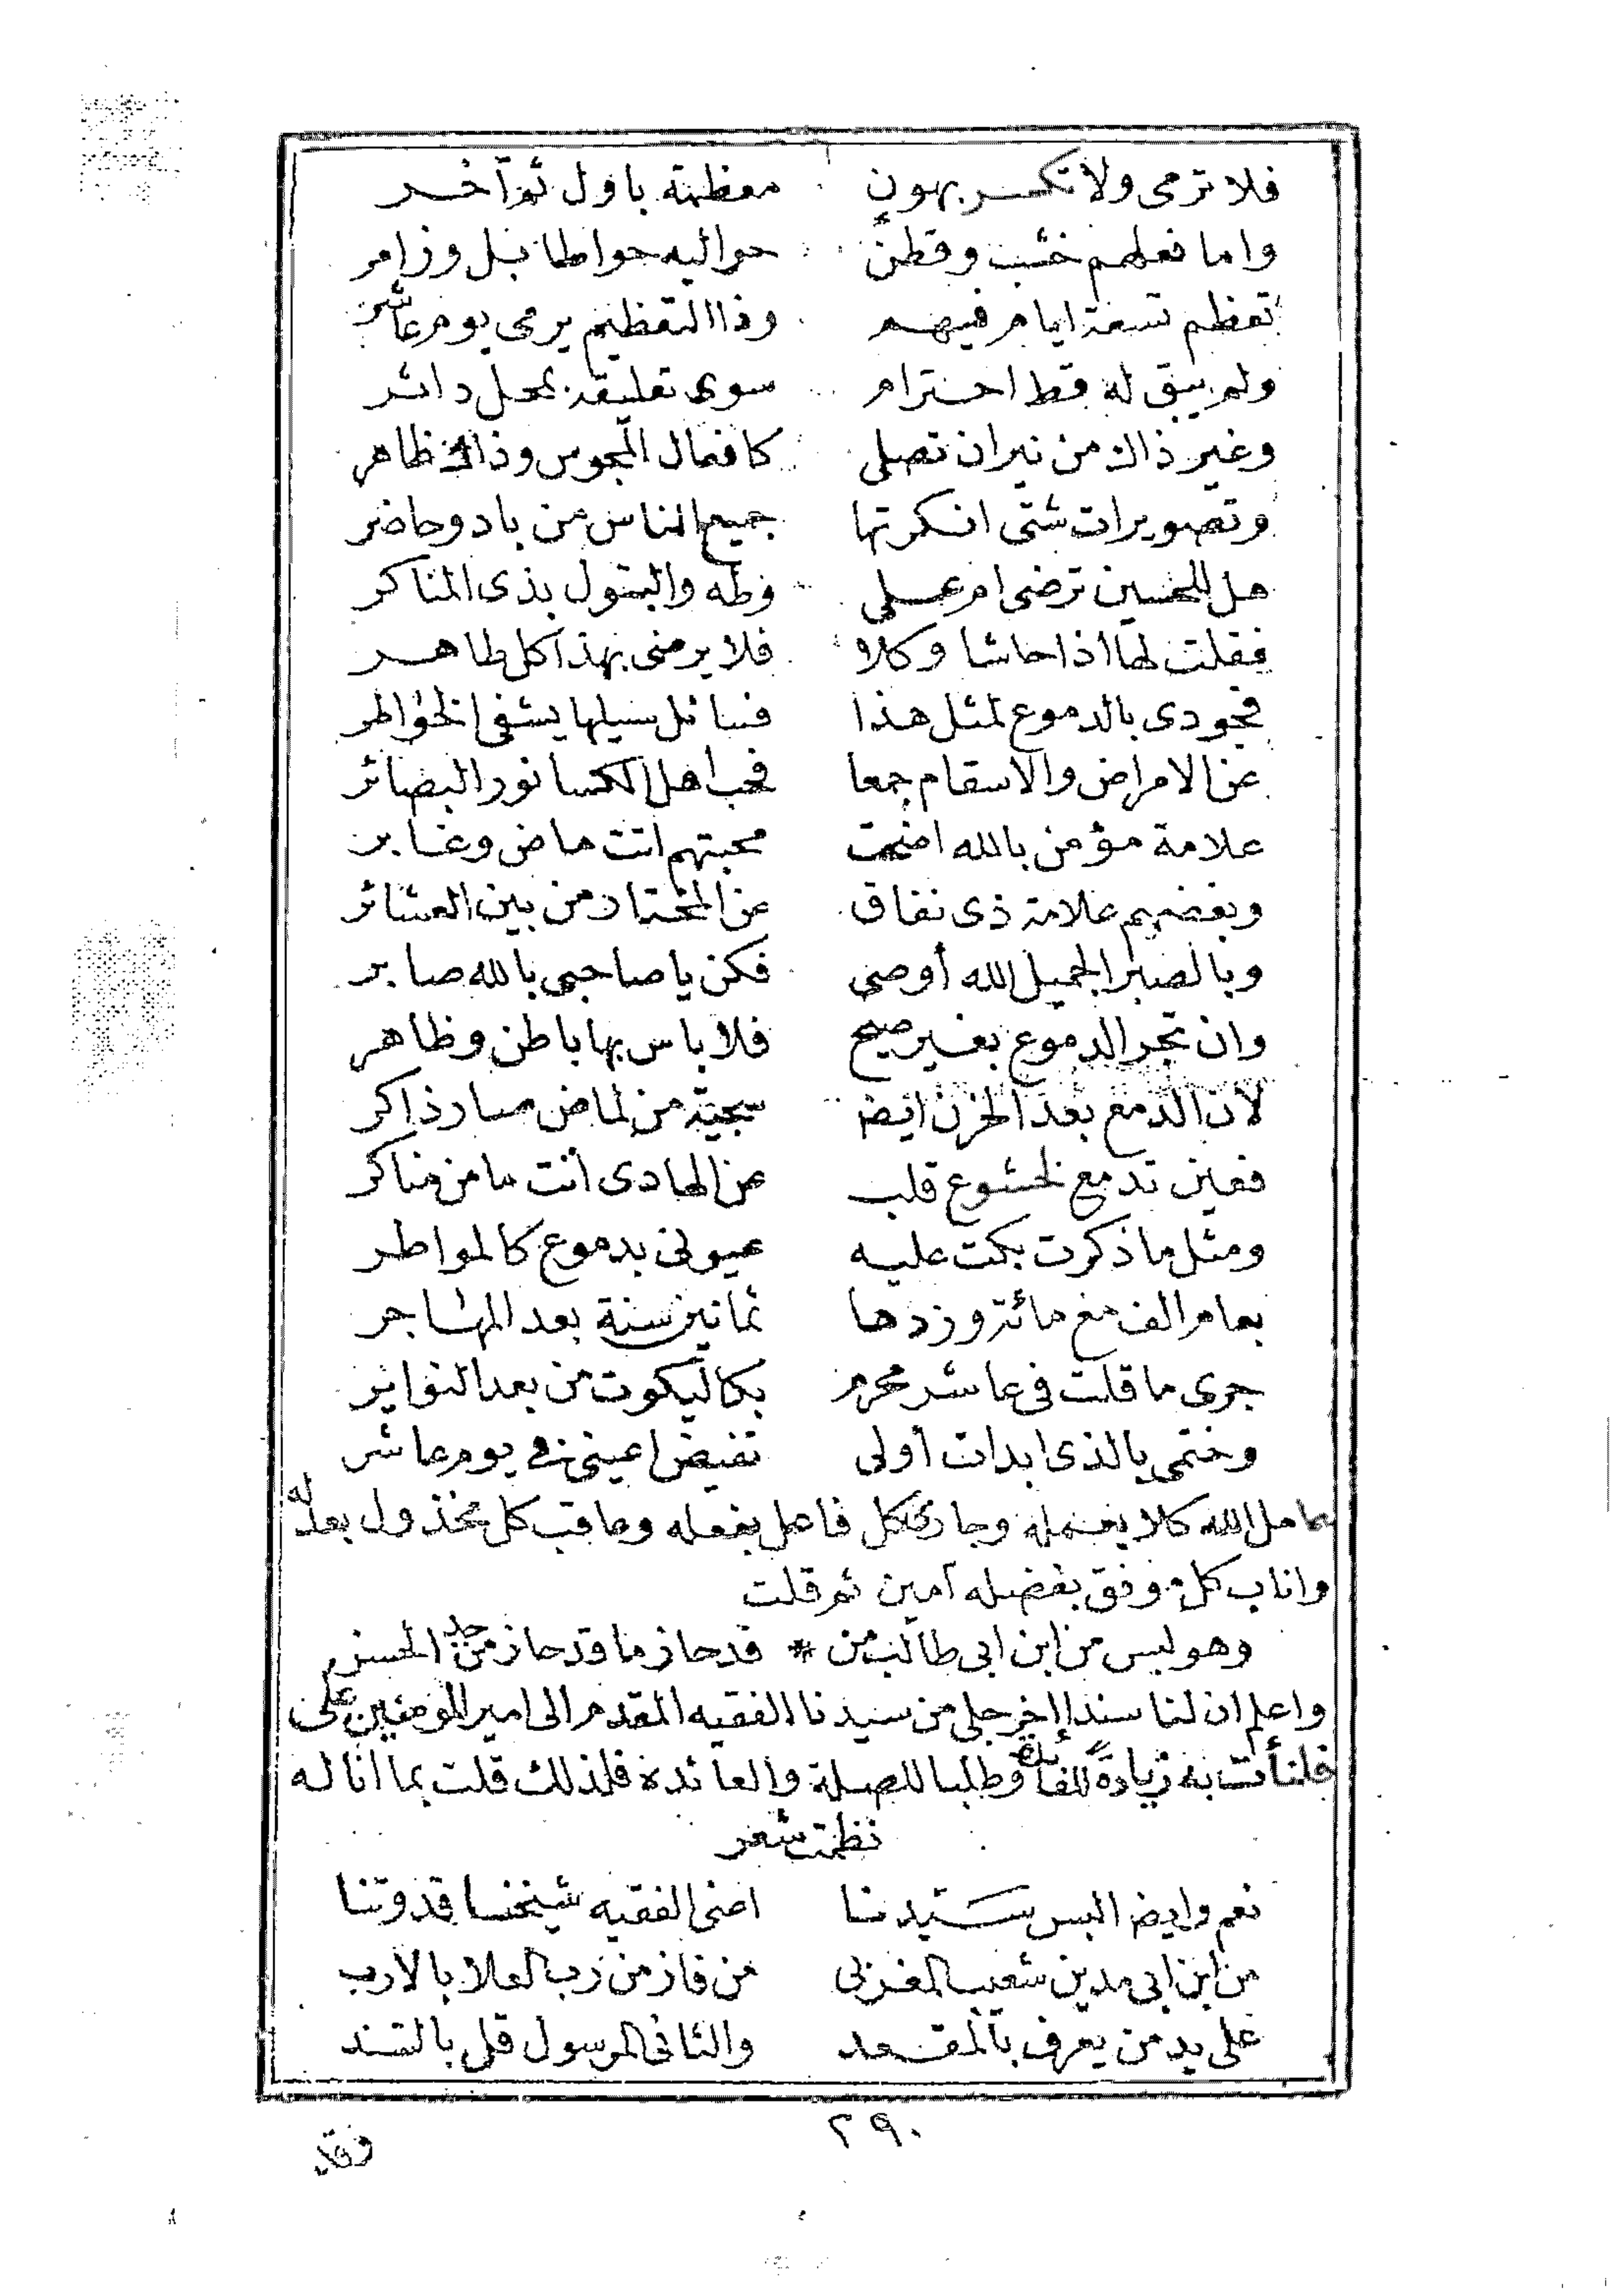 فلا ترمى ولا تكسر بهون معظمة باول ثم آخر
واما فعلهم خشب وقطن حواليه حواطا بل وزامر
تعظم تسعة ايام فيهم وذا التعظيم يرمى يوم عاشر
ولم يبق له قط احترام سوى تعليقه بمحل داثر
وغير ذاك من نيران تصلى كافعال المجوس وذاك ظاهر
وتصويرات شتى انكرتها جميع الناس من باد وحاضر
هل للحسين ترضى ام علي وطه والبتول بذى المناكر
فقلت لها اذا حاشا وكلا فلا يرضى بهذا كل طاهر
فجودى بالدموع لمثل هذا فسائل سيلها يشفى الخواطر
عن الامراض والاسقام جمعا فحب اهل الكسا نور البصائر
علامة مؤمن بالله اضحت محبتهم اتت ماض وغابر
وبغضهم علامة ذى نفاق عن المختار من بين العشائر
وبالصبر الجميل الله أوصى فكن يا صاحبى بالله صابر
وان تجر الدموع بغير صيح فلا باس بها باطن وظاهر
لان الدمع بعد الحزن ايض سجية من لماض صار ذاكر
فعين تدمع لخشوع قلب عن الهادى أتت ما من مناكر
ومثل ما ذكرت بكت عليه عيونى بدموع كالمواطر
بعام الف مع مائة وزدها ثمانين سنة بعد المهاجر
جرى ما قلت فى عاشر محرم بكاليكوت من بعد التواتر
وختمى بالذى ابدات أولى تفيض اعينى فى يوم عاشر
عامل الله كلا بعمله وجازى كل فاعل بفعله وعاقب كل مخذول بعدله
واثاب كل موفق بفضله آمين ثم قلت
وهو لبس من ابن ابى طالب من * قد حاز ما قد حاز من جد الحسن
واعلم ان لنا سندا اخر جلى من سيدنا الفقيه المقدم الى امير المومنين على
فلنأت به زيادة للفائدة وطلبا للصلة والعائدة فلذلك قلت بما انا له
نظمت شعر
نعم وايض البس سيدنا اعنى الفقيه شيخنا قدوتنا
من ابن ابى مدين شعيب المغربى من فاز من رب العلا بالارب
على يد من يعرف بالمقعد والثانى المرسول قل بالسند
٢٩٠
وقد